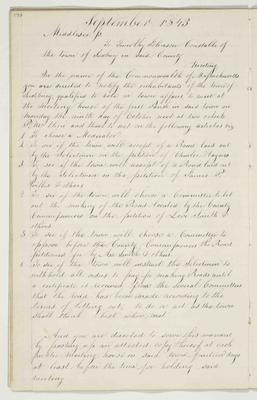 September 1843
Middlesex ss.
To Timothy Johnson Constable of
the town of Sudbury in said County
Greeting
In the name of the Commonwealth of Massachusetts
you are directed to notify the inhabitants of the town of
Sudbury qualified to vote in town affairs to meet at
the meeting house of the first Parish in said town on
Monday the ninth day of October next at two o'clock
P.M. then and there to act on the following articles viz
1 To choose a Moderator
2 To see if the town will accept of a Road laid out
by the Selectmen on the petition of Charles
3 To see if the town will accept of a Road laid out
by the Selectmen on the petition of James P.
& others
4 To see if the town will choose a Committee to let
out the making of the Road located by the County
Commissioners on the petition of Levi Smith &
others
5 To see if the town will choose a Committee to
appear before the County Commissioners the Road
petitioned for by Smith & others
6 To see if the town will instruct the Selectmen to
withhold all orders to pay for making Roads until
a certificate is received from the several Committees
that the road has been made according to the
terms of letting out, to do or act as the town
shall think best when met
And you are directed to serve this warrant
by posting up an attested copy thereof at each
public meeting house in said town fourteen days
at least before the time for holding said
meeting